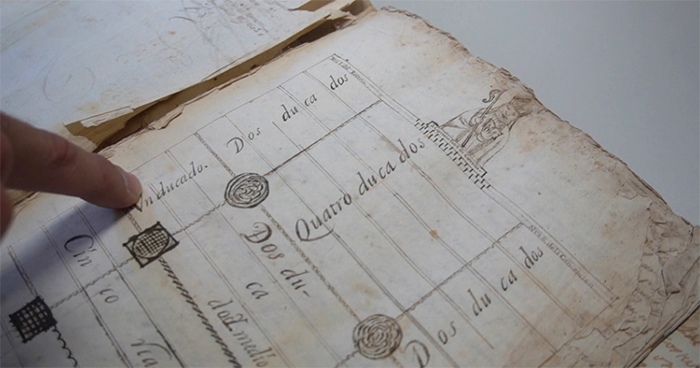 Dos du ca dos
Un ducado.
Quatro ducados
Dos du-
ca
dos
Cin
co
Dos du ca dos